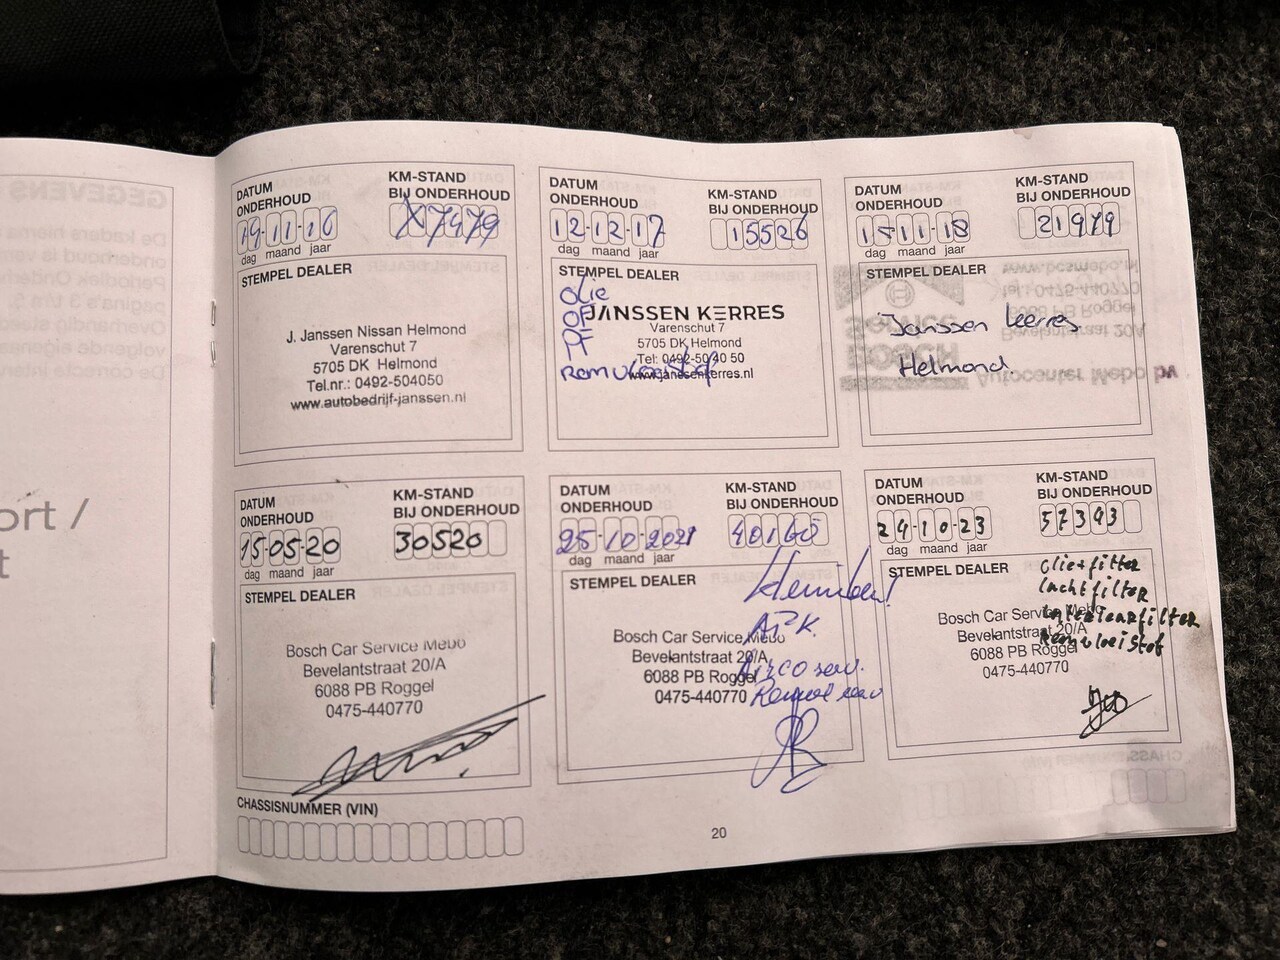 ort /
t
DATUM ONDERHOUD
KM-STAND BIJ ONDERHOUD
19-11-16
X7479
dag maand jaar
STEMPEL DEALER
J. Janssen Nissan Helmond
Varenschut 7
5705 DK Helmond
Tel.nr.: 0492-504050
www.autobedrijf-janssen.nl
DATUM ONDERHOUD
KM-STAND BIJ ONDERHOUD
12-12-17
15526
dag maand jaar
STEMPEL DEALER
Olie
OF
PF
Remvloeistof
JANSSEN KERRES
Varenschut 7
5705 DK Helmond
Tel: 0492-50 40 50
www.janssenkerres.nl
DATUM ONDERHOUD
KM-STAND BIJ ONDERHOUD
15-11-18
21979
dag maand jaar
STEMPEL DEALER
Janssen Kerres
Helmond.
DATUM ONDERHOUD
KM-STAND BIJ ONDERHOUD
15-05-20
30520
dag maand jaar
STEMPEL DEALER
Bosch Car Service Mebo
Bevelantstraat 20/A
6088 PB Roggel
0475-440770
DATUM ONDERHOUD
KM-STAND BIJ ONDERHOUD
25-10-2021
40160
dag maand jaar
STEMPEL DEALER
Bosch Car Service Mebo
Bevelantstraat 20/A
6088 PB Roggel
0475-440770
A.P.K.
Airco serv.
DATUM ONDERHOUD
KM-STAND BIJ ONDERHOUD
24-10-23
57393
dag maand jaar
STEMPEL DEALER
Olie+filter
luchtfilter
interieurfilter
Remvloeistof
Bosch Car Service Mebo
Bevelantstraat 20/A
6088 PB Roggel
0475-440770
CHASSISNUMMER (VIN)
20